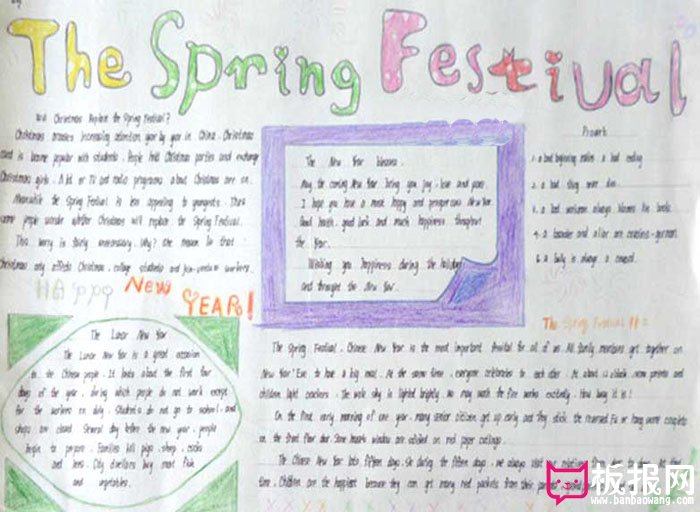 The Spring Festival
Will Christmas Replace the Spring Festival?
Christmas arouses increasing attention year by year in China. Christmas
card is become popular with students. People hold Christmas parties and exchange
Christmas gifts. A lot of TV and radio programs about Christmas are on.
Meanwhile the Spring Festival is less appealing to youngsters. Thus
some people wonder whether Christmas will replace the Spring Festival.
This worry is fairly unnecessary. Why? One reason lies that
Christmas only affects Christians, college students and joint-venture workers.
HAppy New YEAR!
The New Year blessing.
May the coming New Year bring you joy, love and peace.
I hope you have a most happy and prosperous New Year.
Good health, good luck and much happiness throughout
the Year.
Wishing you happiness during the holidays
and throught the New Year.
Proverb
1. a bad beginning makes a bad ending
2. a bad thing never dies.
3. a bad workman always blames his tools.
4. a boaster and a liar are cousins-german.
6. a bully is always a coward.
The Lunar New Year
The Lunar New Year is a great occasion
to the Chinese people. It lasts about the first four
days of the year, during which people do not work except
for the workers on duty. Students do not go to school, and
shops are closed. Several days before the new year, people
begin to prepare. Families kill pigs, sheep, cocks
and hens. City dwellers buy meat fish
and vegetables.
The Spring Festival
The Spring Festival, Chinese New Year is the most important festival for all of us. All family members get together on
New Year' Eve to have a big meal. At the same time, everyone celebrates to each other. At about 12 o'clock, some parents and
children light crackers. The whole sky is lighted brightly. We may watch the fire works excitedly. How busy it is!
On the first early morning of one year, many senior citizen get up early and they stick the reversed Fu or hang some couplets
on the front door. Some house's window are sticked on red paper cuttings.
The Chinese New Year lasts fifteen days. So during the fifteen days, we always visit our relatives from door to door. At that
time, Children are the happiest because they can get many red packets from their parents
板报网
www.banbaowang.com